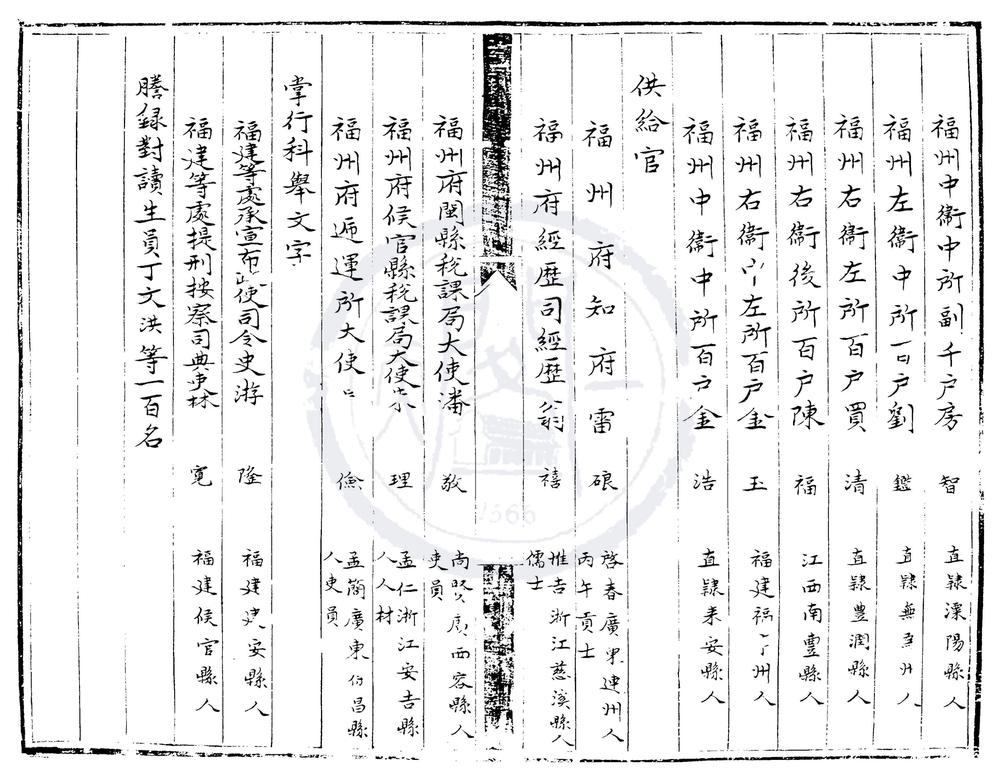 福州中衞中所副千户房 智 直隸溧陽縣人
福州左衞中所百户劉 鑑 直隸無州人
福州右衞左所百户買 清 直隸豊潤縣人
福州右衞後所百户陳 福 江西南豐縣人
福州右衞左所百户金 玉 福建福州人
福州中衞中所百户金 浩 直隸来安縣人
供給官
福州府知府雷 硠 啓春廣東連州人
丙午貢士
福州府經歷司經歷翁 禧 惟吉浙江慈溪縣人
儒士
福州府閩縣稅課局大使潘 敬 尚賢廣西容縣人
吏員
福州府侯官縣稅課局大使宋 理 孟仁浙江安吉縣
人人材
福州府逓運所大使 儉 孟簡廣東昌縣
人吏員
掌行科舉文字
福建等處承宣布政使司令史游 隆 福建建安縣人
福建等處提刑按察司典吏林 寛 福建侯官縣人
謄録對讀生員丁文洪等一百名
1366